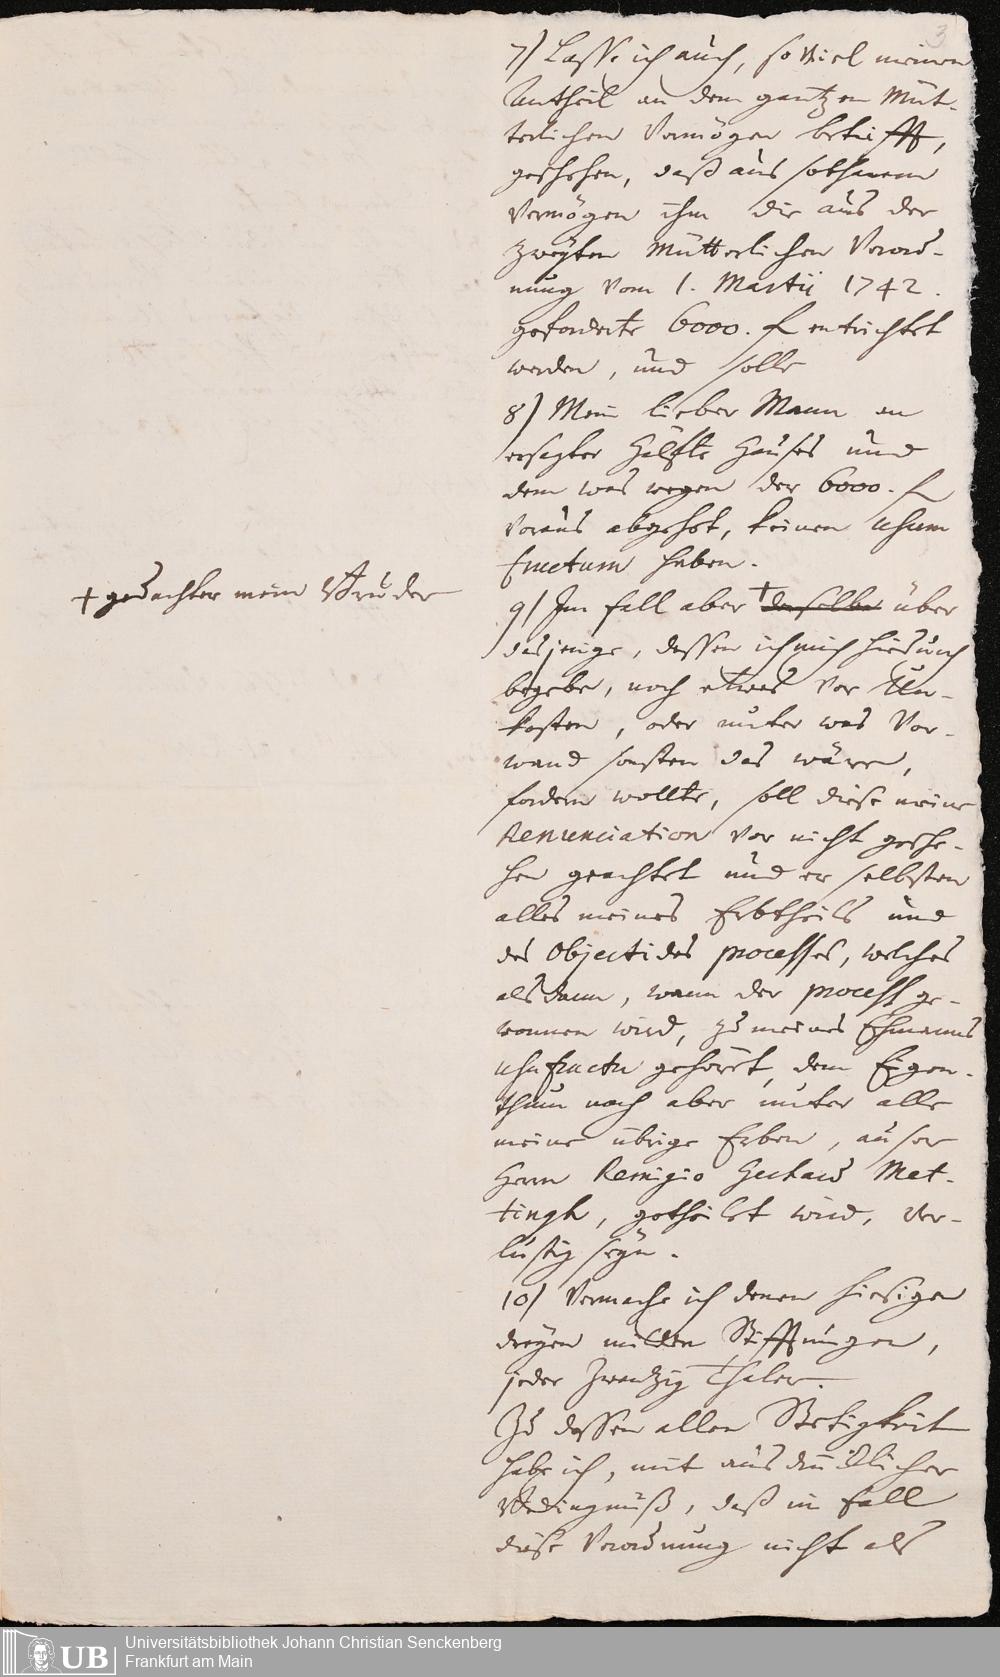 3
7) Lasse ich auch, so viel meinen
Antheil an dem gantzen Müt-
terlichen Vermögen betrifft,
geschehen, daß aus sothanem
Vermögen ihm die aus der
zweyten Mütterlichen Verord-
nung vom 1. Martii 1742.
geforderte 6000. f entrichtet
werden, und solle
8) Mein lieber Mann an
besagter Hälfte Hauses und
dem was wegen der 6000. f
voraus abgehet, keinen usum
fructum haben.
+ gedachter mein Bruder
9) Im fall aber + derselbe über
dasjenige, dessen ich mich hierdurch
begebe, noch etwas vor Un-
kosten, oder unter was Vor-
wand sonsten das wäre,
fordern wollte, soll diese meine
Renunciation vor nicht gesche-
hen geachtet und er selbsten
alles meines Erbtheils und
des Objecti des processes, welches
alsdann, wann der process ge-
wonnen wird, zu meines Ehmanns
usufructu gehöret, dem Eigen-
thum nach aber unter alle
meine übrige Erben, auser
Herrn Remigio Gerhard Met-
tingh, getheilet wird, ver-
lustig seyn.
10) Vermache ich denen hiesigen
dreyen milden Stifftungen,
jeder Zwantzig Thaler.
Zu dessen allen Stetigkeit
habe ich, mit ausdrücklicher
Bedingnuß, daß im fall
diese Verordnung nicht als
UB
Universitätsbibliothek Johann Christian Senckenberg
Frankfurt am Main